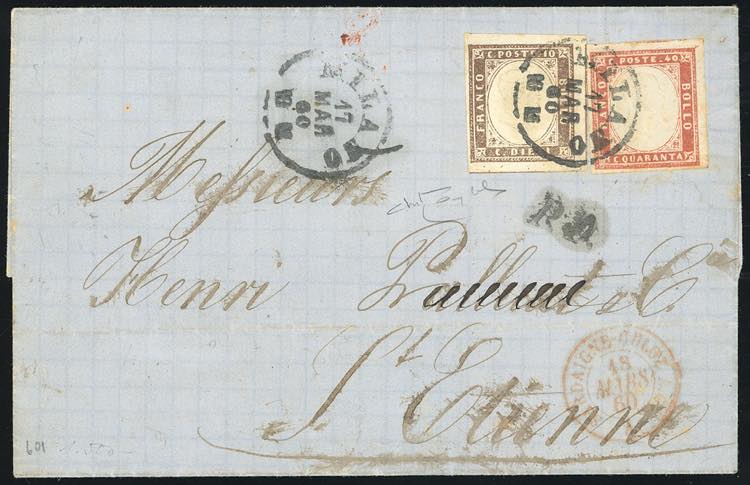 MILANO
17
MAR
60
C. POSTE 10
FRANCO
C. DIECI
MILANO
17
MAR
60
C. POSTE. 40
BOLLO
C. QUARANTA
Messieurs
P.D.
Henri & C.
SARDAIGNE-CULOZ
18
MARS
60
St Etienne
601